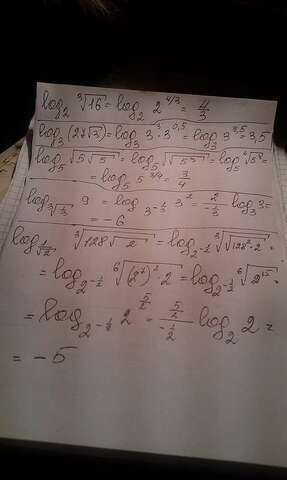 log₂ ∛16 = log₂ 2^(4/3) = 4/3
log₃(27√3) = log₃ 3³·3^(0,5) = log₃ 3^(3,5) = 3,5
log₅ √(5√5) = log₅ √(√5³) =
= log₅ 5^(3/4) = 3/4
9 = log_(3^(-1/3)) 3² = 2/(-1/3) log₃ 3 =
= -6
∛(128√2) = log_(2^(-1/2)) ∛(√(128²·2)) =
= log_(2^(-1/2)) ⁶√((2⁷)²·2) = log_(2^(-1/2)) ⁶√(2¹⁵) =
= log_(2^(-1/2)) 2^(5/2) = (5/2)/(-1/2) log₂ 2 =
= -5